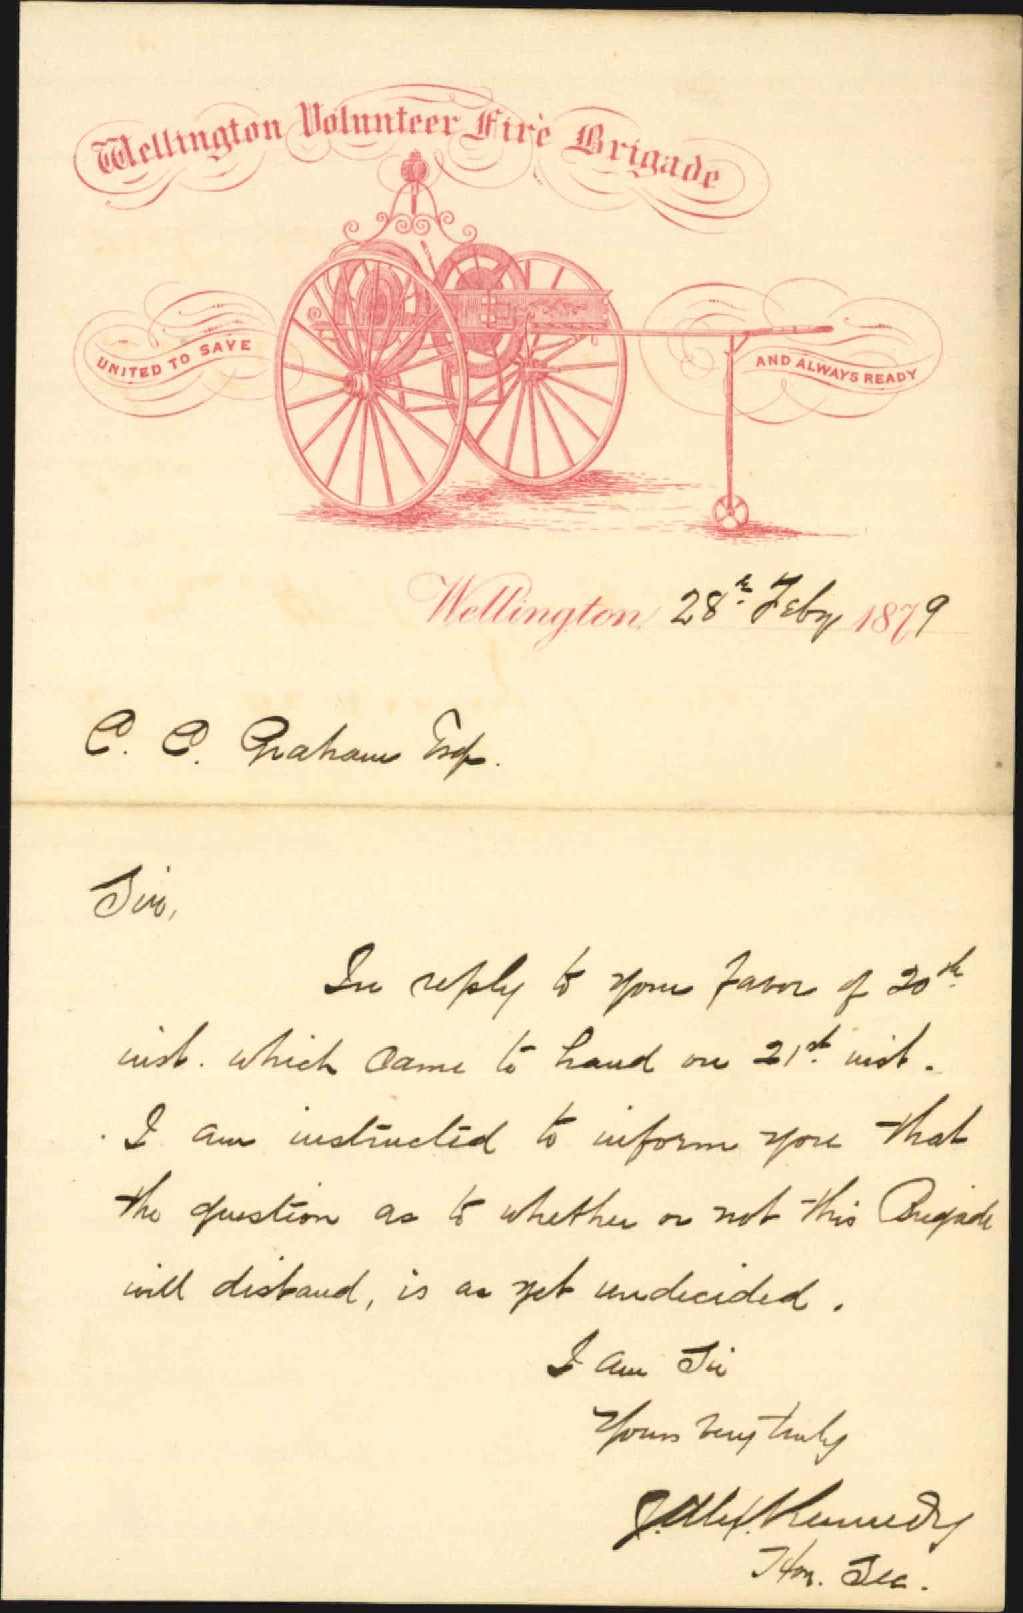 Wellington Volunteer Fire Brigade
UNITED TO SAVE
AND ALWAYS READY
Wellington 28th Feby 1879
C. C. Graham Esq.
Sir,
In reply to your favor of 20th
inst. which came to hand on 21st inst.
I am instructed to inform you that
the question as to whether or not this Brigade
will disband, is as yet undecided.
I am Sir
Yours very truly
J. Alex. Kennedy
Hon. Sec.